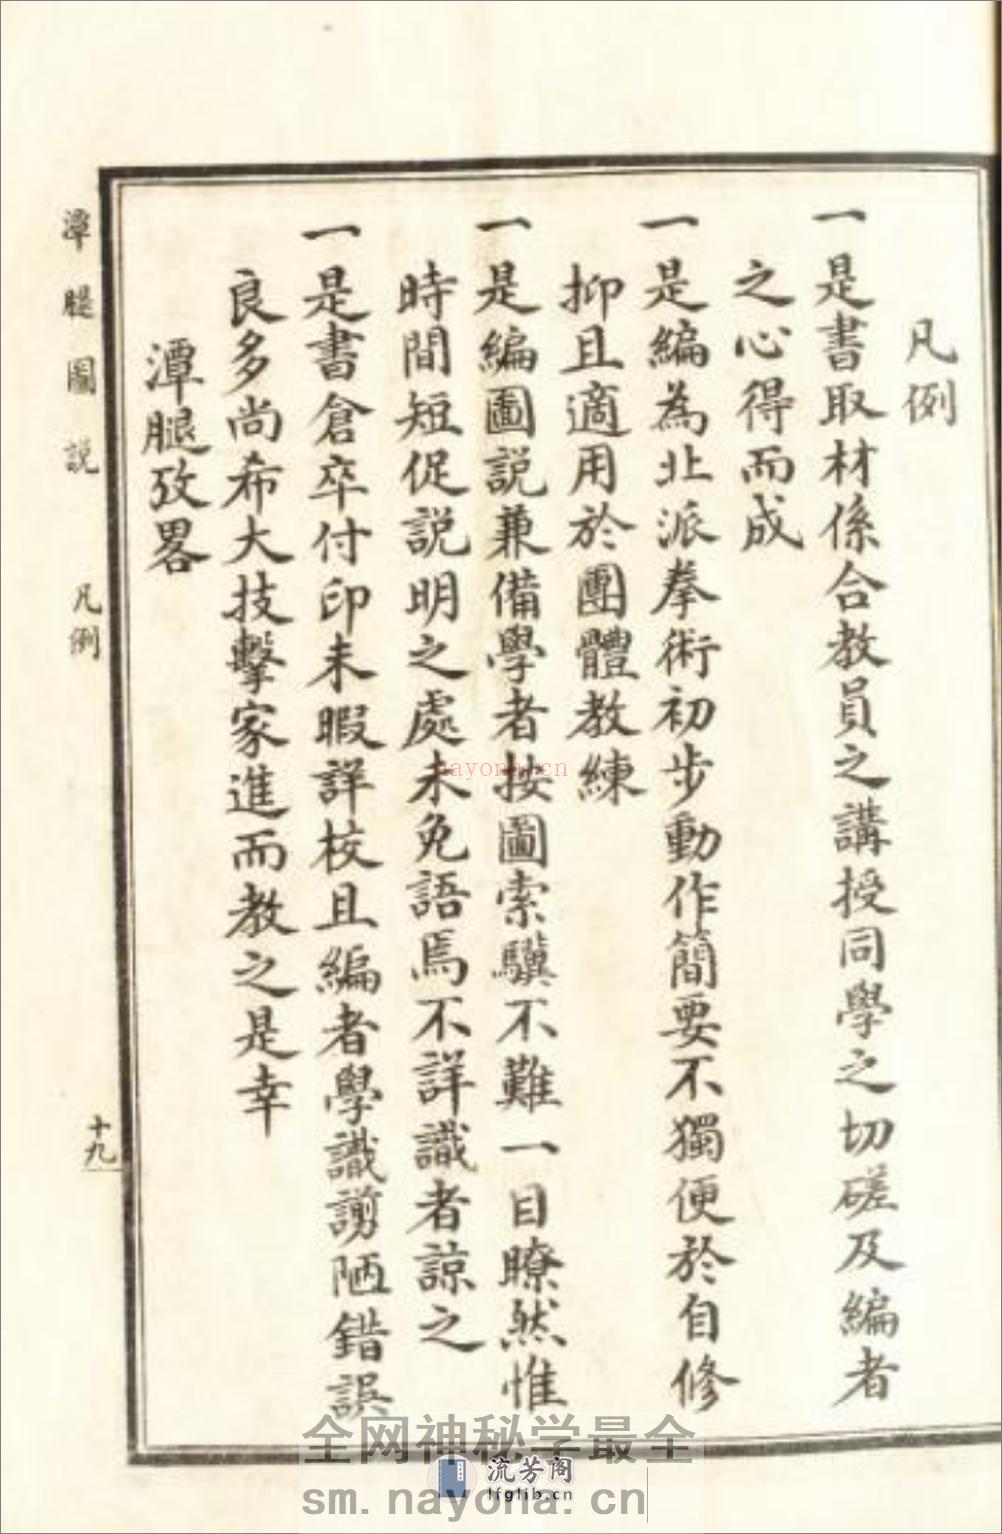 凡例
一是書取材係合教員之講授同學之切磋及編者
之心得而成
一是編為北派拳術初步動作簡要不獨便於自修
抑且適用於團體教練
一是編圖說兼備學者按圖索驥不難一目瞭然惟
時間短促說明之處未免語焉不詳識者諒之
一是書倉卒付印未暇詳校且編者學識謭陋錯誤
良多尚希大技擊家進而教之是幸
潭腿攷畧
潭腿圖說 凡例 十九
nayona.cn
全网神秘学最全
流芳阁
lfglib.cn
sm.nayona.cn